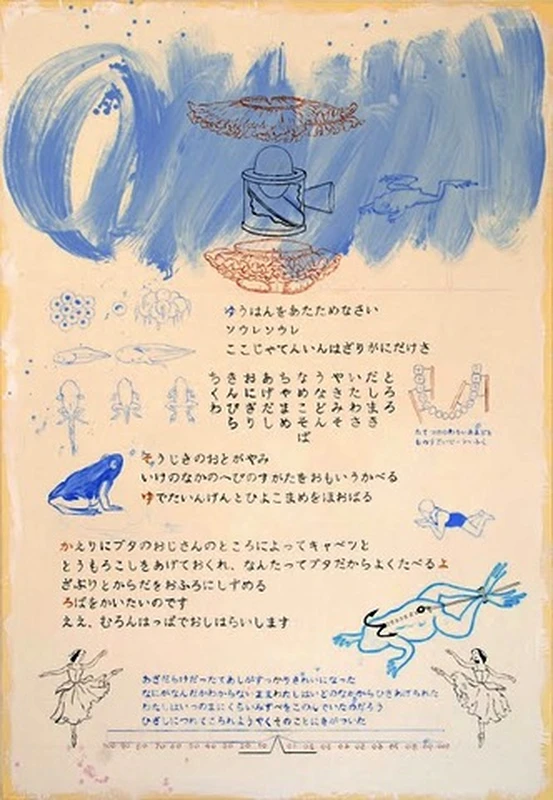 ゆうはんをあたためなさい
ソウレソウレ
ここじゃてんいんはざりがにだけさ
とろろ
だしまき
いたわさ
やきみそ
うなどん
なめこそば
ちゃまめ
あげだし
おにぎり
きんぴら
ちくわ
そうじきのおとがやみ
いけのなかのへびのすがたをおもいうかべる
ゆでたいんげんとひよこまめをほおばる
かえりにブタのおじさんのところによってキャベツと
とうもろこしをあげておくれ、なんたってブタだからよくたべるよ
ざぶりとからだをおふろにしずめる
ろばをかいたいのです
ええ、むろんはっぱでおしはらいします
あざだらけだったてあしがすっかりきれいになった
なにがなんだかわからないままわたしはいどのなかからひきあげられた
わたしはいつのまにくらいみずべをこのんでいたのだろう
ひざしにつれてこられようやくそのことにきがついた